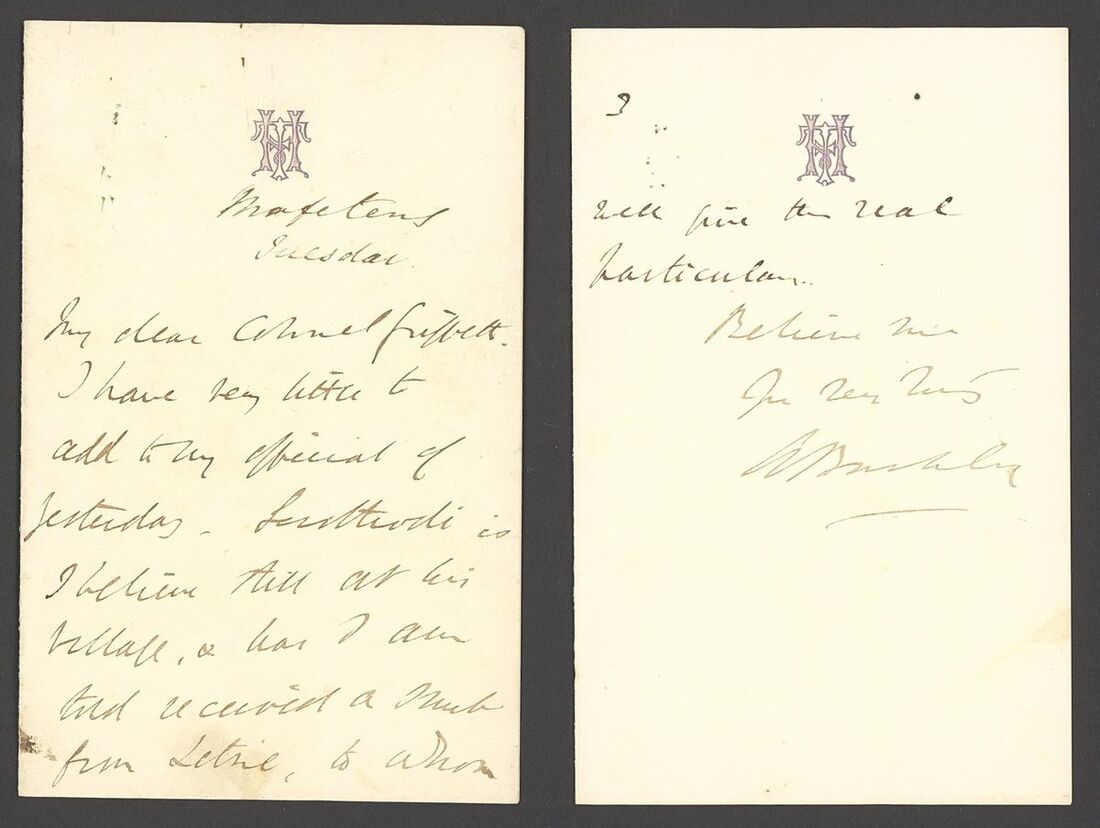 Mafeteng
Tuesday.
My dear Colonel Griffith.
I have very little to
add to my official of
yesterday. Lerothodi is
I believe still at his
village, & has I am
told received a snub
from Letsie, to whom
3
will give the real
particulars.
Believe me
Yrs very truly